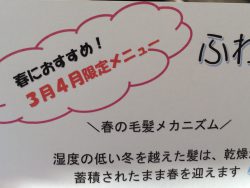 春におすすめ！
3月4月限定メニュー
ふわ
＼春の毛髪メカニズム／
湿度の低い冬を越えた髪は、乾燥
蓄積されたまま春を迎えます